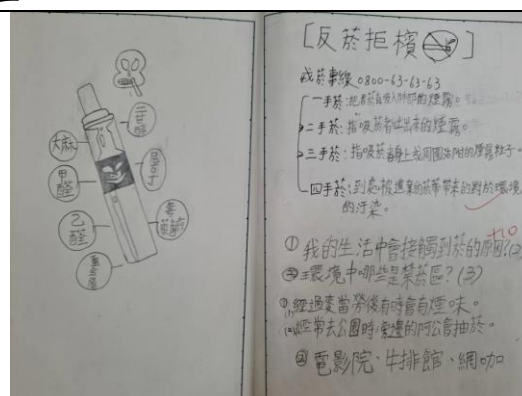 大麻
甲醛
乙醛
重金屬
二甘醇
尼古丁
[反菸拒檳]
戒菸專線0800-63-63-63
一手菸：把菸直接吸入肺部的煙霧。
二手菸：指吸菸者吐出來的煙霧。
三手菸：指吸菸者身上或周圍沾附的煙霧粒子。
四手菸：到處被進棄的菸蒂帶來的對於環境
的汙染。
①我的生活中會接觸到菸的原因?(2)
②環境中哪些是禁菸區?(3)
①(1)經過麥當勞後有時會有煙味。
(2)經常去公園時,旁邊的阿公會抽菸。
②電影院、牛排館、網咖